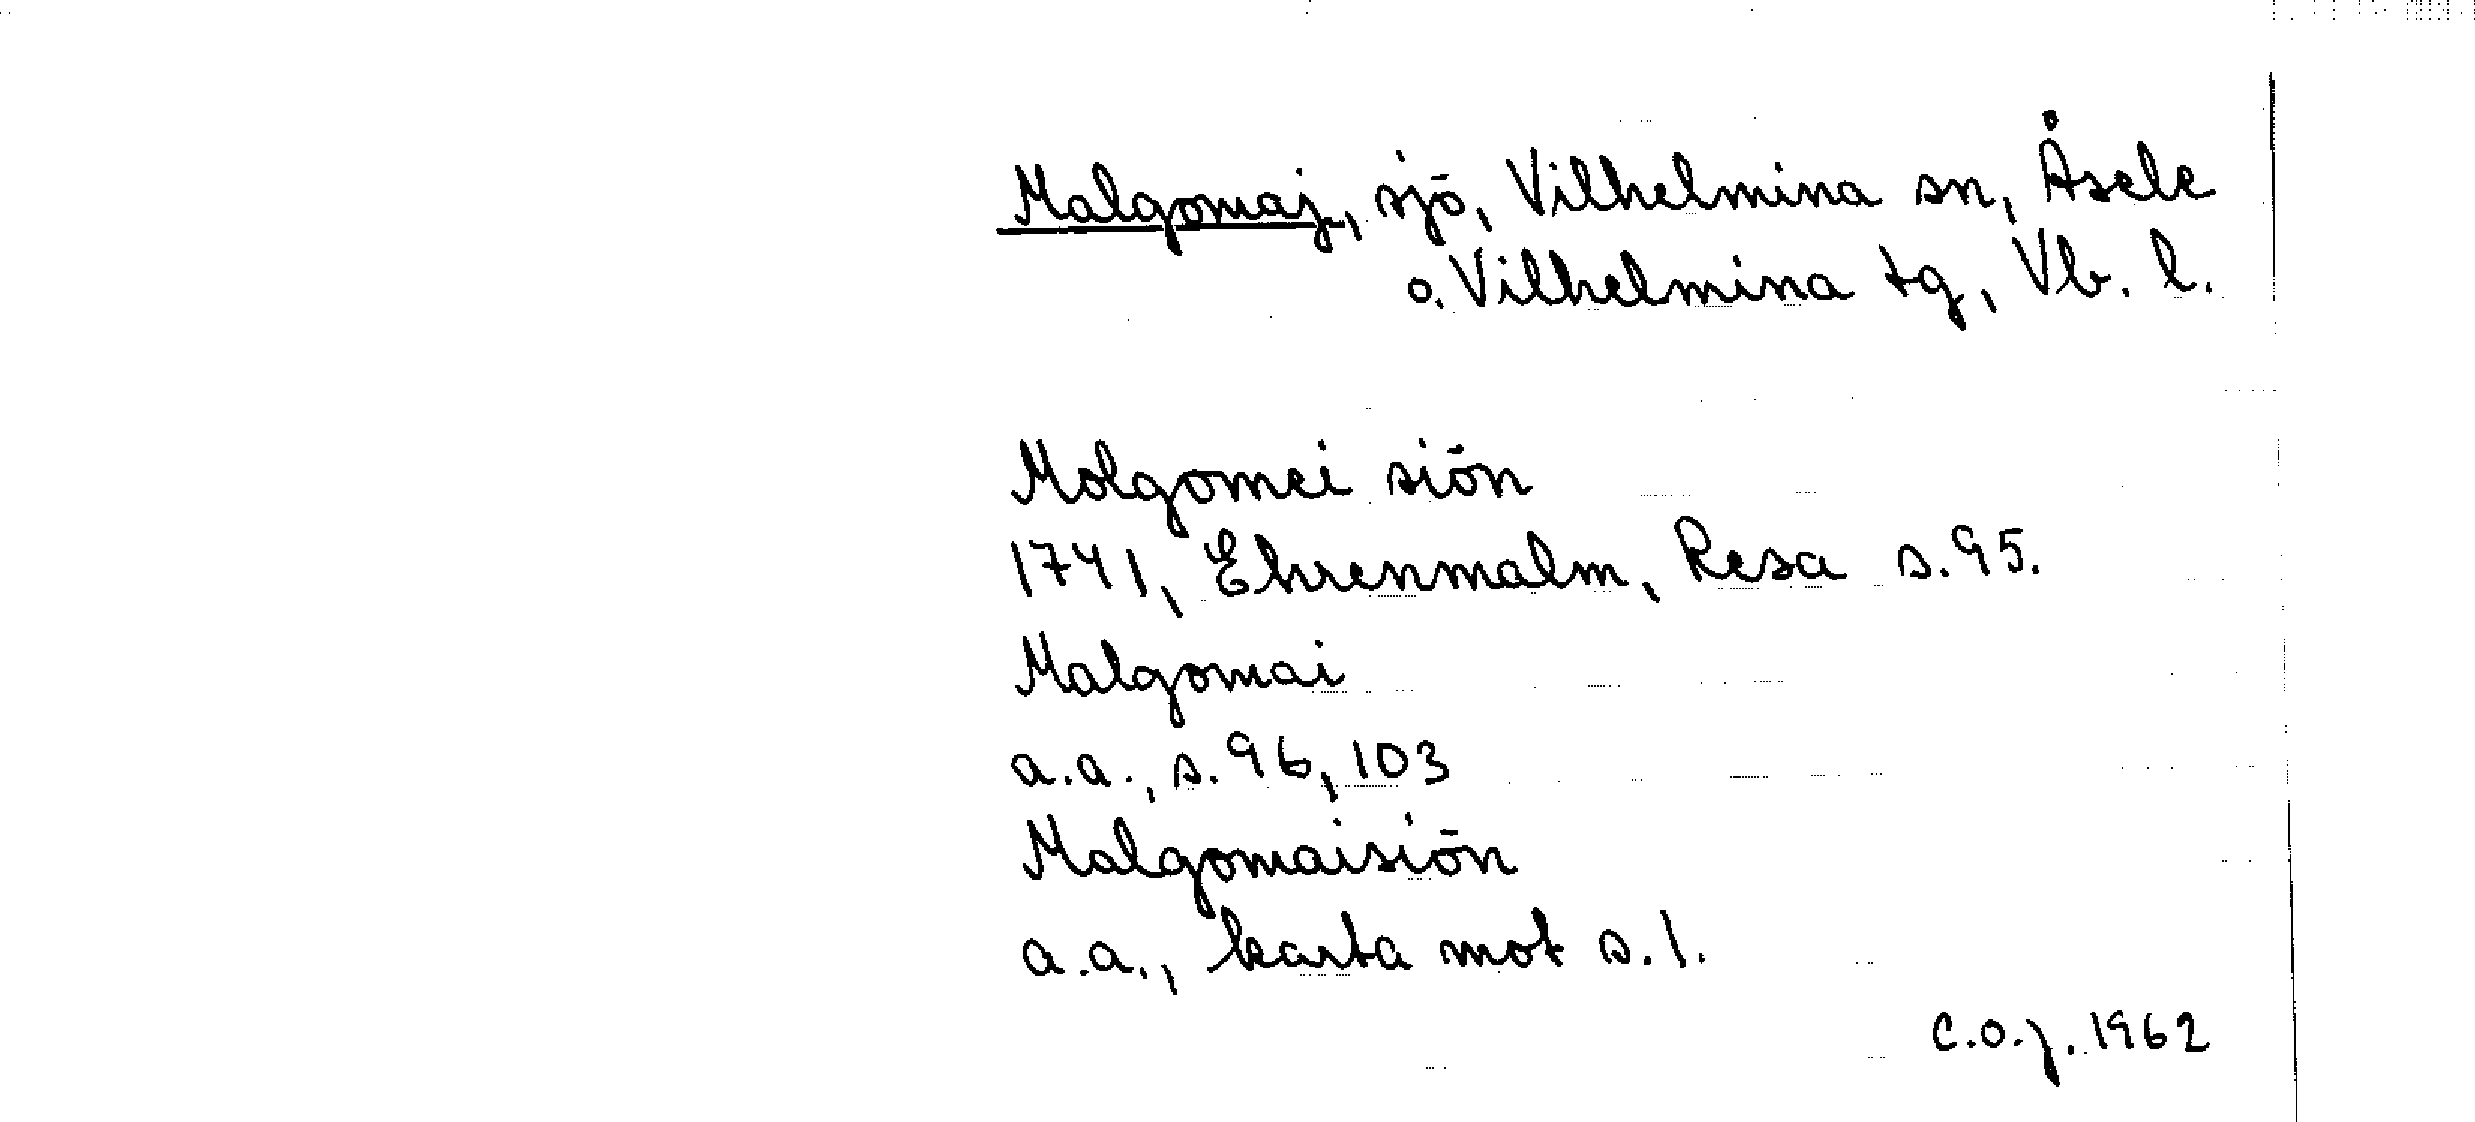 Malgomaj, sjö, Vilhelmina sn, Åsele
o. Vilhelmina tg, Vb. l.
Molgomei siön
1741, Ehrenmalm, Resa s. 95.
Malgomai
a.a., s. 96, 103
Malgomaisiön
a.a., karta mot s. 1.
C.O.J. 1962